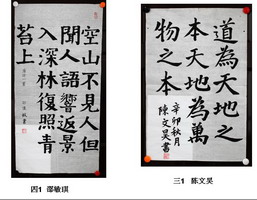 空山不見人但
聞人語響返景
入深林復照青
苔上
道為天地之
本天地為萬
物之本
辛卯秋月
陳文昊書
四1 邵敏琪
三1 陈文昊